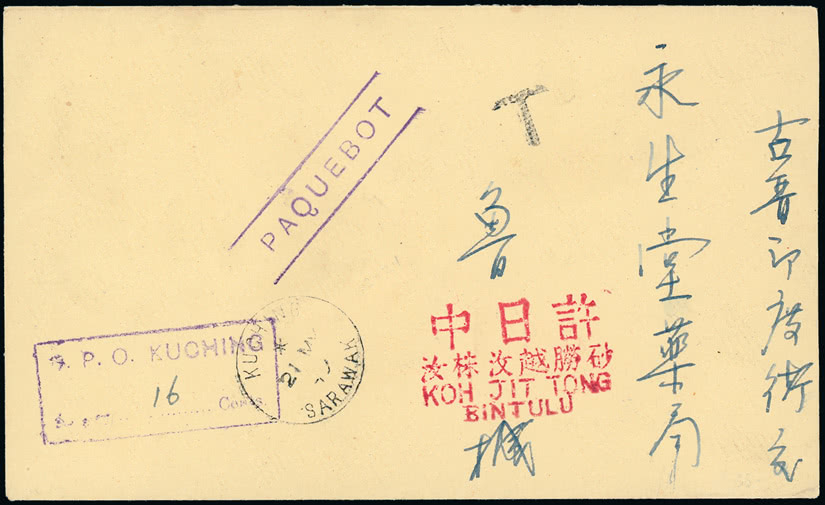 古晋印度街交
永生堂藥局
魯
T
PAQUEBOT
許日中
砂勝越汶株汝
KOH JIT TONG
BINTULU
P. O. KUCHING
16
Cents
KUCHING
21
SARAWAK